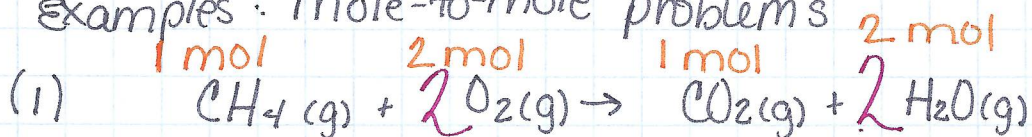 Examples: mole-to-mole problems
1 mol 2 mol 1 mol 2 mol
(1) CH4 (g) + 2 O2(g) → CO2(g) + 2 H2O(g)